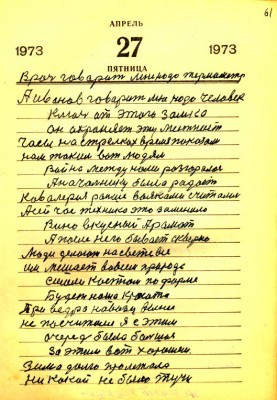 61
АПРЕЛЬ
1973 27 1973
ПЯТНИЦА
Врач говорит мне надо термометр
А иванов говорит мне надо человек
Ключ от этого замка
Он охраняет эту
Часы на стрелках время показали
нам таким вот людям
Война между нами разгорался
А начальнику была радость
Кавалерия раньше вояками считались
А сейчас техника это заменило
Вино вкусный
А после него бывает скверно
Люди делают на свете все
им мешает вовсем природа
Сшили костюм по форме
Будет наша
Три ведра навозу
не посчитали я с этим
очередь была большая
За этим вот хорошим
Зима долго пролежала
Никакой не было тучи